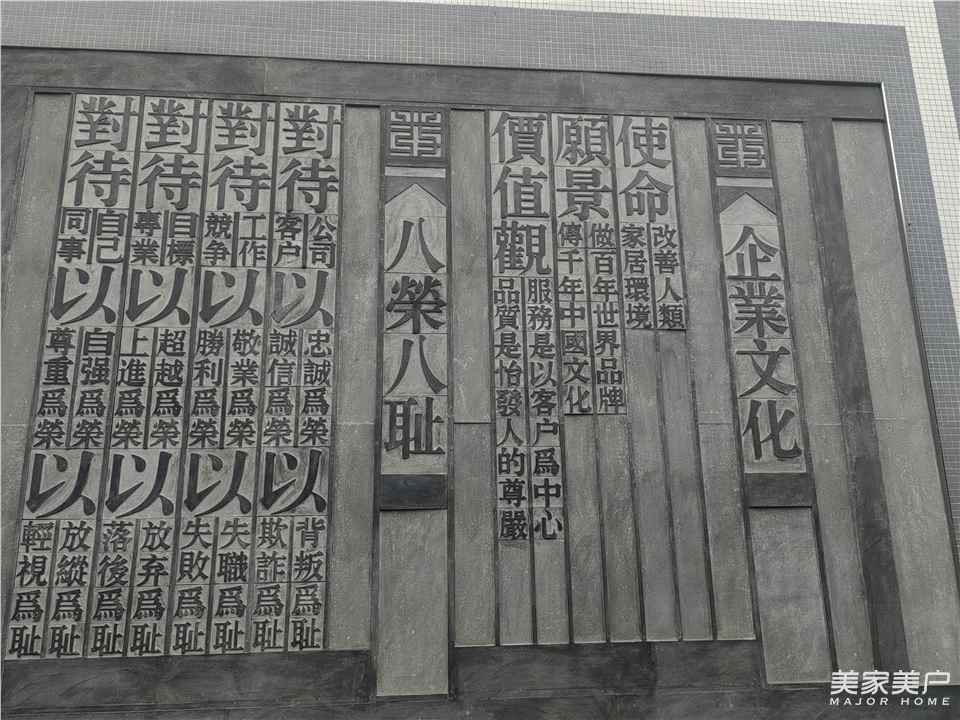 企業文化
使命
改善人類
家居環境
願景
做百年世界品牌
傳千年中國文化
價值觀
服務是以客户爲中心
品質是怡發人的尊嚴
八榮八耻
對待
公司
客户
以
忠誠爲榮
誠信爲榮
以
背叛爲耻
欺詐爲耻
對待
工作
競争
以
敬業爲榮
勝利爲榮
以
失職爲耻
失敗爲耻
對待
目標
專業
以
超越爲榮
上進爲榮
以
放弃爲耻
落後爲耻
對待
自己
同事
以
自强爲榮
尊重爲榮
以
放縱爲耻
輕視爲耻
美家美户
MAJOR HOME